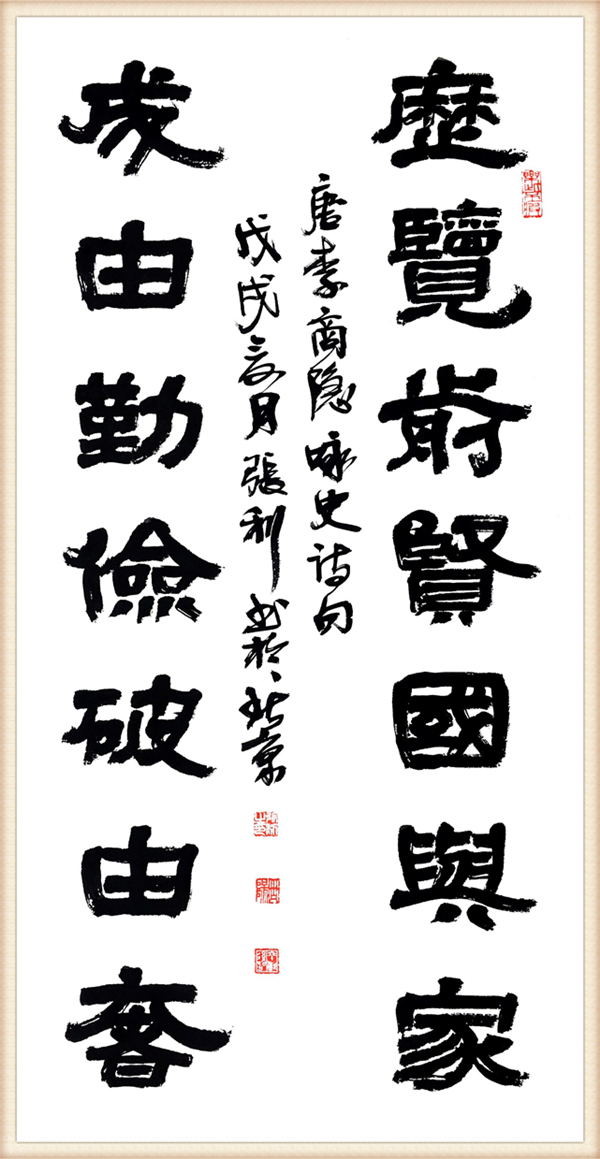 歷覽前賢國與家
成由勤儉破由奢
唐李商隐咏史诗句
戊戌亥月張利书於北京